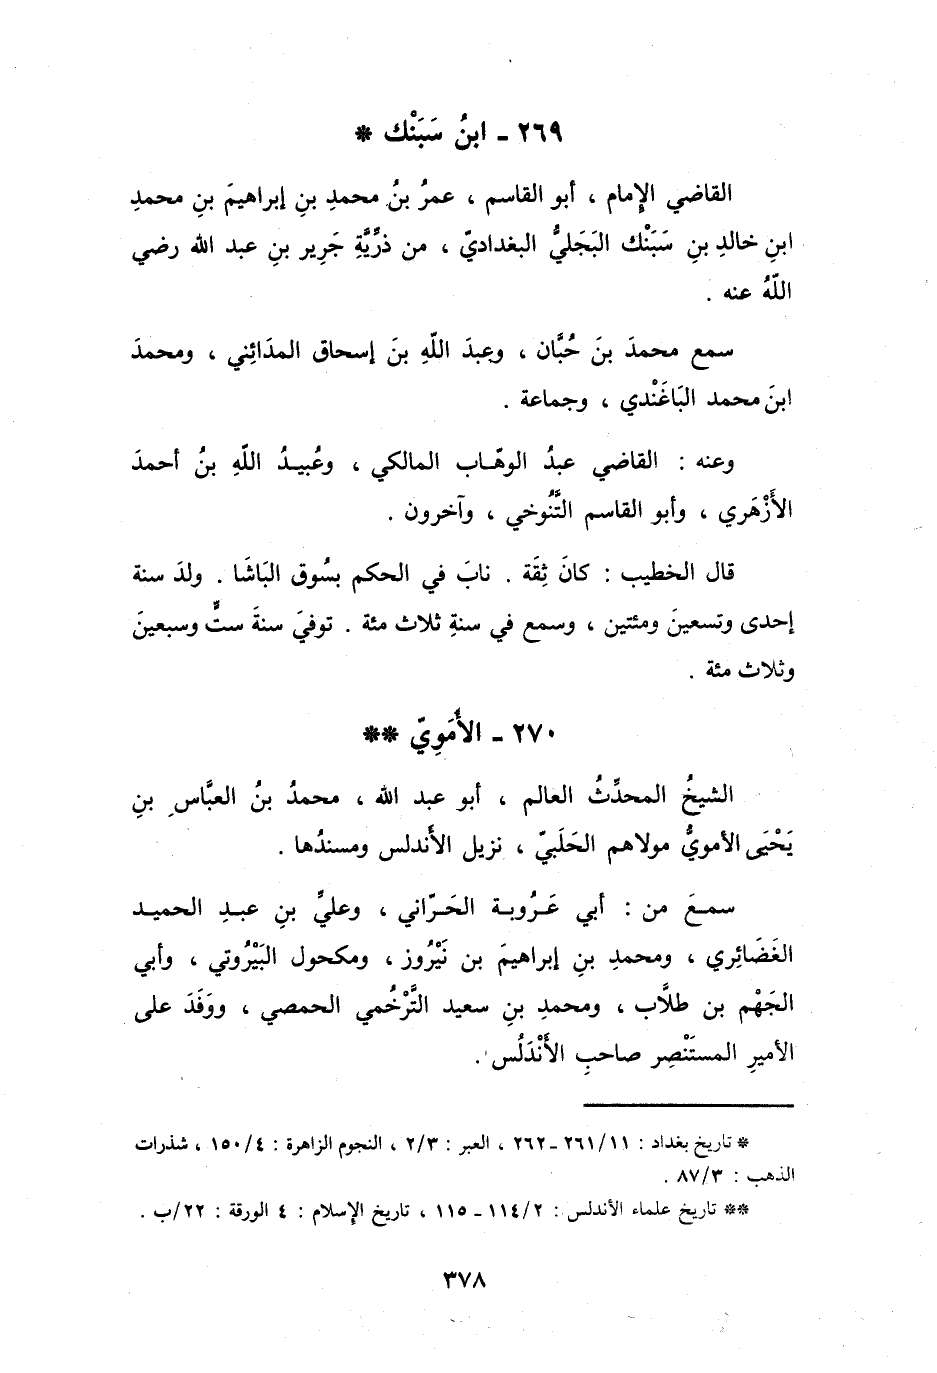 ٢٦٩ - ابنُ سَبَنْك *
القاضي الإمام ، أبو القاسم ، عمرُ بنُ محمدِ بنِ إبراهيمَ بنِ محمدِ
ابنِ خالدِ بنِ سَبَنْك البَجَليُّ البغداديّ ، من ذرِّيَّةِ جَرِير بنِ عبد الله رضي
اللّهُ عنه .
سمع محمدَ بنَ حُبَّان ، وعبدَ اللّهِ بنَ إسحاق المدَائِني ، ومحمدَ
ابنَ محمد البَاغَنْدي ، وجماعة .
وعنه : القاضي عبدُ الوهّاب المالكي ، وعُبيدُ اللّهِ بنُ أحمدَ
الأَزْهَري ، وأبو القاسم التَّنُوخي ، وآخرون .
قال الخطيب : كانَ ثِقَة . نابَ في الحكم بسُوق البَاشَا . ولدَ سنة
إحدى وتسعينَ ومئتين ، وسمع في سنةِ ثلاث مئة . توفيَ سنةَ ستٍّ وسبعينَ
وثلاث مئة .
٢٧٠ - الأُمَوِيّ **
الشيخُ المحدِّثُ العالم ، أبو عبد الله ، محمدُ بنُ العبَّاسِ بنِ
يَحْيَى الأمويُّ مولاهم الحَلَبيّ ، نزيل الأَندلس ومسندُها .
سمعَ من : أبي عَرُوبة الحَرّاني ، وعليِّ بنِ عبدِ الحميد
الغَضَائِري ، ومحمدِ بنِ إبراهيمَ بن نَيْرُوز ، ومكحول البَيْرُوتي ، وأبي
الجَهْم بن طلاَّب ، ومحمدِ بنِ سعيد التَّرْخُمي الحمصي ، ووَفَدَ على
الأميرِ المستَنْصِر صاحبِ الأَنْدَلُس .
* تاريخ بغداد : ٢٦١/١١ - ٢٦٢ ، العبر : ٢/٣ ، النجوم الزاهرة : ١٥٠/٤ ، شذرات
الذهب : ٨٧/٣ .
** تاريخ علماء الأندلس : ١١٤/٢ - ١١٥ ، تاريخ الإسلام : ٤ الورقة : ٢٢/ب .
٣٧٨